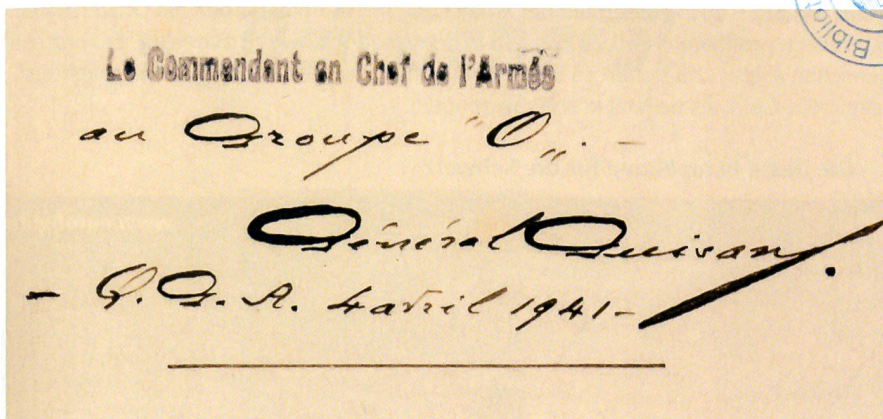 Biblio
Le Commandant en Chef de l'Armée
au Groupe "O„. -
Général Guisan.
- Q.G.A. 4 avril 1941 -